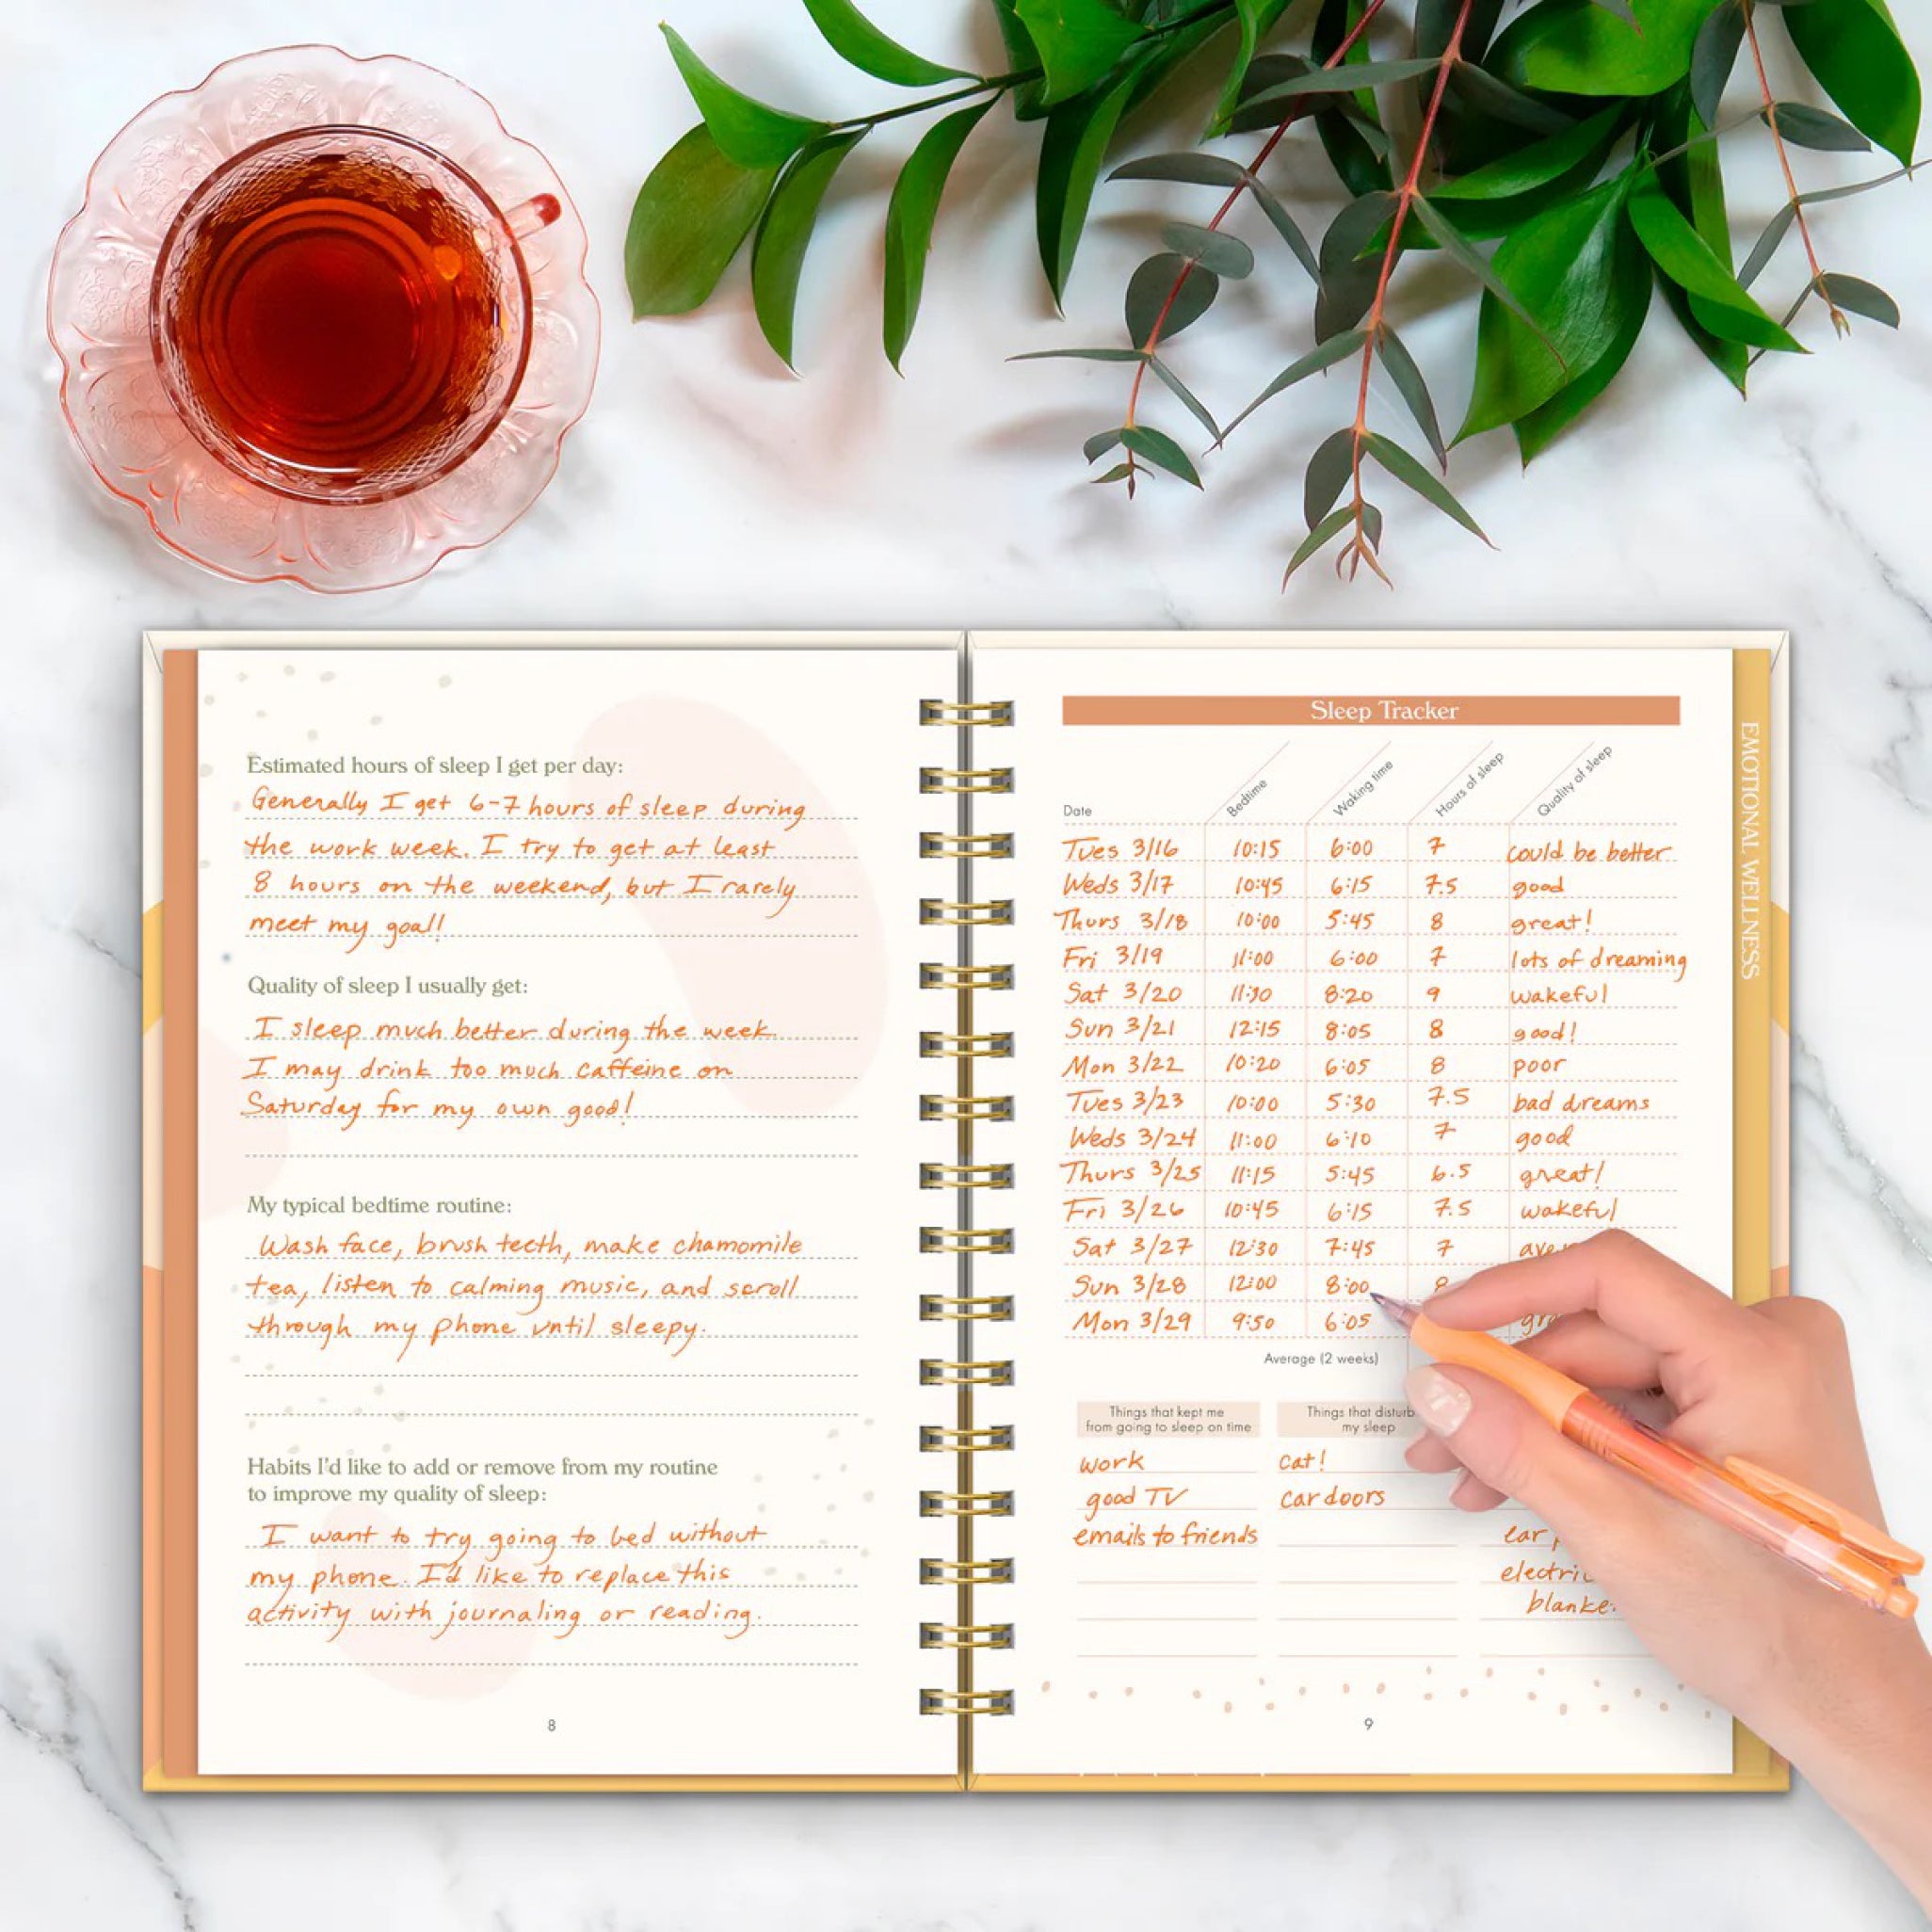 Estimated hours of sleep I get per day:
Generally I get 6-7 hours of sleep during
the work week. I try to get at least
8 hours on the weekend, but I rarely
meet my goal!
Quality of sleep I usually get:
I sleep much better during the week.
I may drink too much caffeine on
Saturday for my own good!
My typical bedtime routine:
Wash face, brush teeth, make chamomile
tea, listen to calming music, and scroll
through my phone until sleepy.
Habits I'd like to add or remove from my routine
to improve my quality of sleep:
I want to try going to bed without
my phone. I'd like to replace this
activity with journaling or reading.
8
Sleep Tracker
Date Bedtime Waking time Hours of sleep Quality of sleep
Tues 3/16 10:15 6:00 7 could be better
Weds 3/17 10:45 6:15 7.5 good
Thurs 3/18 10:00 5:45 8 great!
Fri 3/19 11:00 6:00 7 lots of dreaming
Sat 3/20 11:30 8:20 9 wakeful
Sun 3/21 12:15 8:05 8 good!
Mon 3/22 10:20 6:05 8 poor
Tues 3/23 10:00 5:30 7.5 bad dreams
Weds 3/24 11:00 6:10 7 good
Thurs 3/25 11:15 5:45 6.5 great!
Fri 3/26 10:45 6:15 7.5 wakeful
Sat 3/27 12:30 7:45 7
Sun 3/28 12:00 8:00
Mon 3/29 9:50 6:05
Average (2 weeks)
Things that kept me
from going to sleep on time
work
good TV
emails to friends
Things that disturb
my sleep
cat!
car doors
ear
9
EMOTIONAL WELLNESS